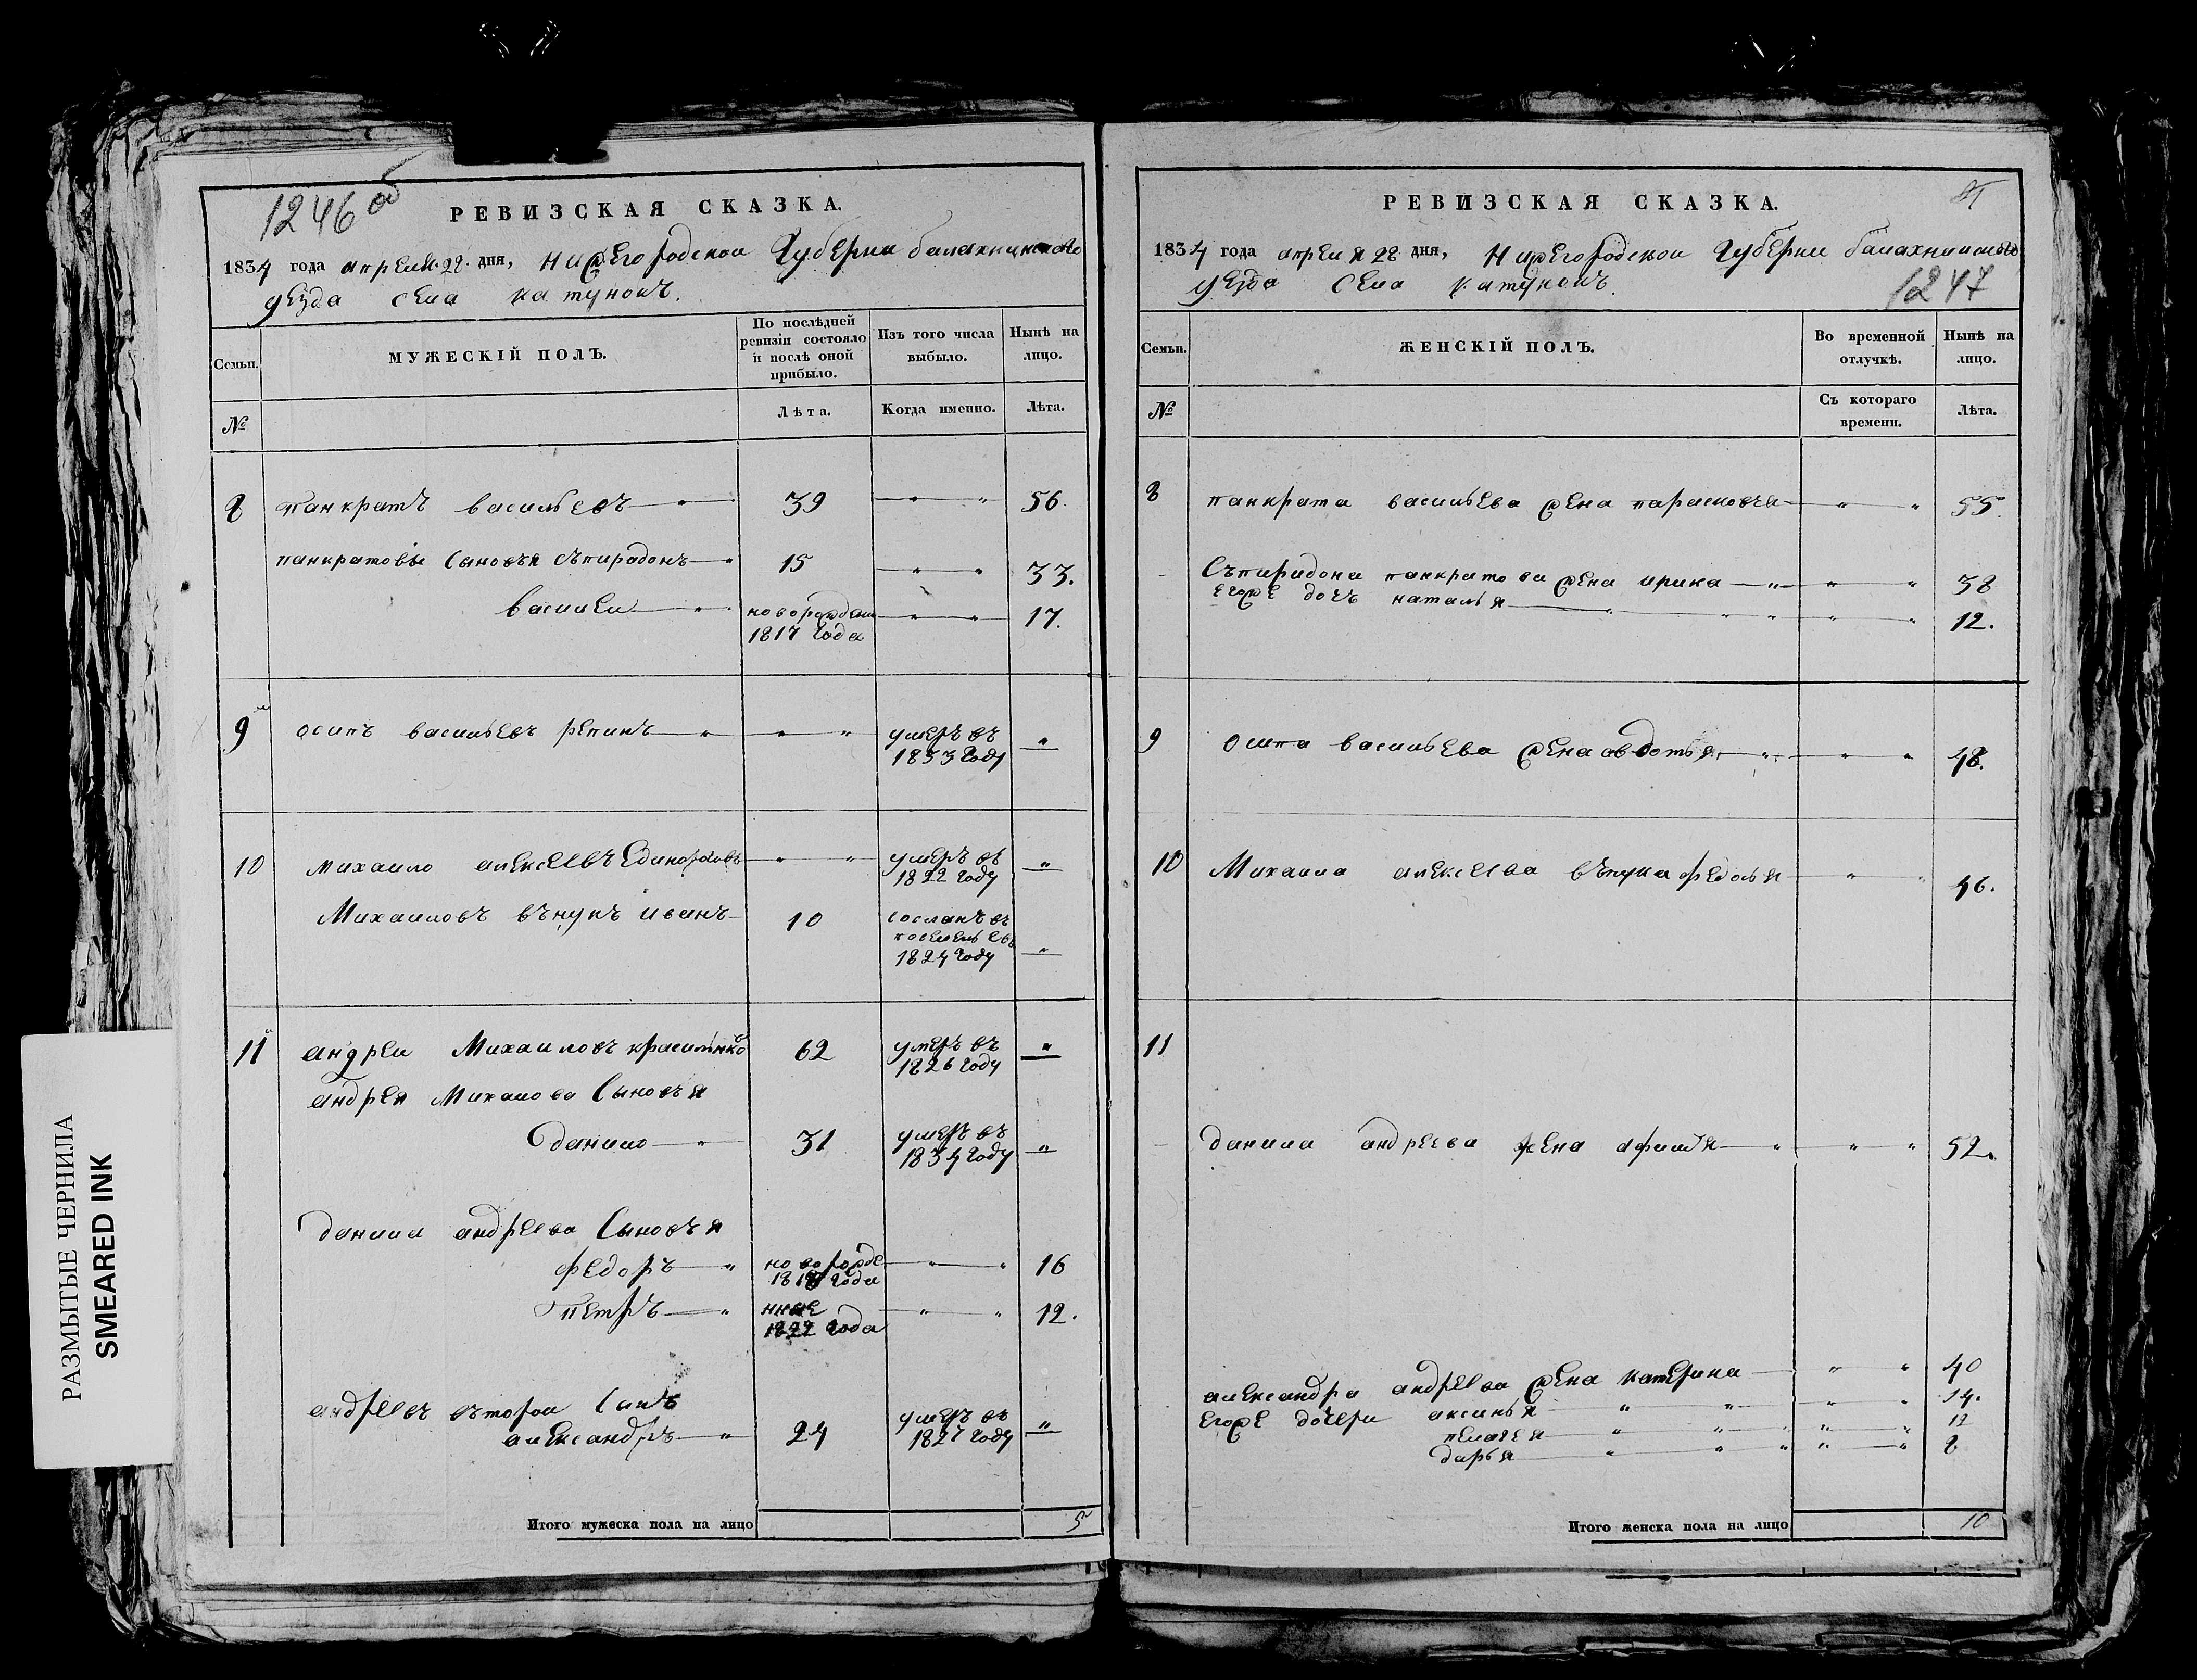 1246 об
РЕВИЗСКАЯ СКАЗКА.
1834 года апреля 22 дня, нижегородской Губерни балахнинского
уезда села катунокъ.
Семьи. МУЖЕСКІЙ ПОЛЪ. По послѣдней ревизіи состояло и послѣ оной прибыло. Изъ того числа выбыло. Нынѣ на лицо.
№ Лѣта. Когда именно. Лѣта.
8 панкратъ васильевъ 39 56.
панкратовы Сыновья съпирадонъ 15 33.
василеи новорожденъ 17.
1817 года
9 осипъ васильевъ репинъ умеръ въ
1833 году
10 михаило алексеевъ умеръ въ
1822 году
Михаиловъ вънукъ иванъ 10 сосланъ въ
1824 году
11 андреи Михаиловъ 62 умеръ въ
1826 году
андрея Михаилова Сыновья
данило 31 умеръ въ
1834 году
данила андреева Сыновья
федоръ новорожде 16
года
петръ нные 12.
1822 года
андреевъ въторои Сынъ
александръ 24 умеръ въ
1827 году
Итого мужеска пола на лицо 5
РЕВИЗСКАЯ СКАЗКА.
1834 года апреля 22 дня, Нижегородскои Губерни балахнинского
уезда села катунокъ.
1247
Семьи. ЖЕНСКІЙ ПОЛЪ. Во временной отлучкѣ. Нынѣ на лицо.
№ Съ котораго времени. Лѣта.
8 панкрата васильева жена парасковъя 55.
Съпиридона панкратова жена ирина 38
егоже дочъ наталья 12.
9 осипа васильева жена авдотья 48.
10 Михаила алексеева вънука федосья 46.
11
данила андреева жена афимъя 52.
александра андреева жена катерина 40
егоже дочери аксинья 14.
пелагея 12
дарья 8
Итого женска пола на лицо 10
РАЗМЫТЫЕ ЧЕРНИЛА
SMEARED INK